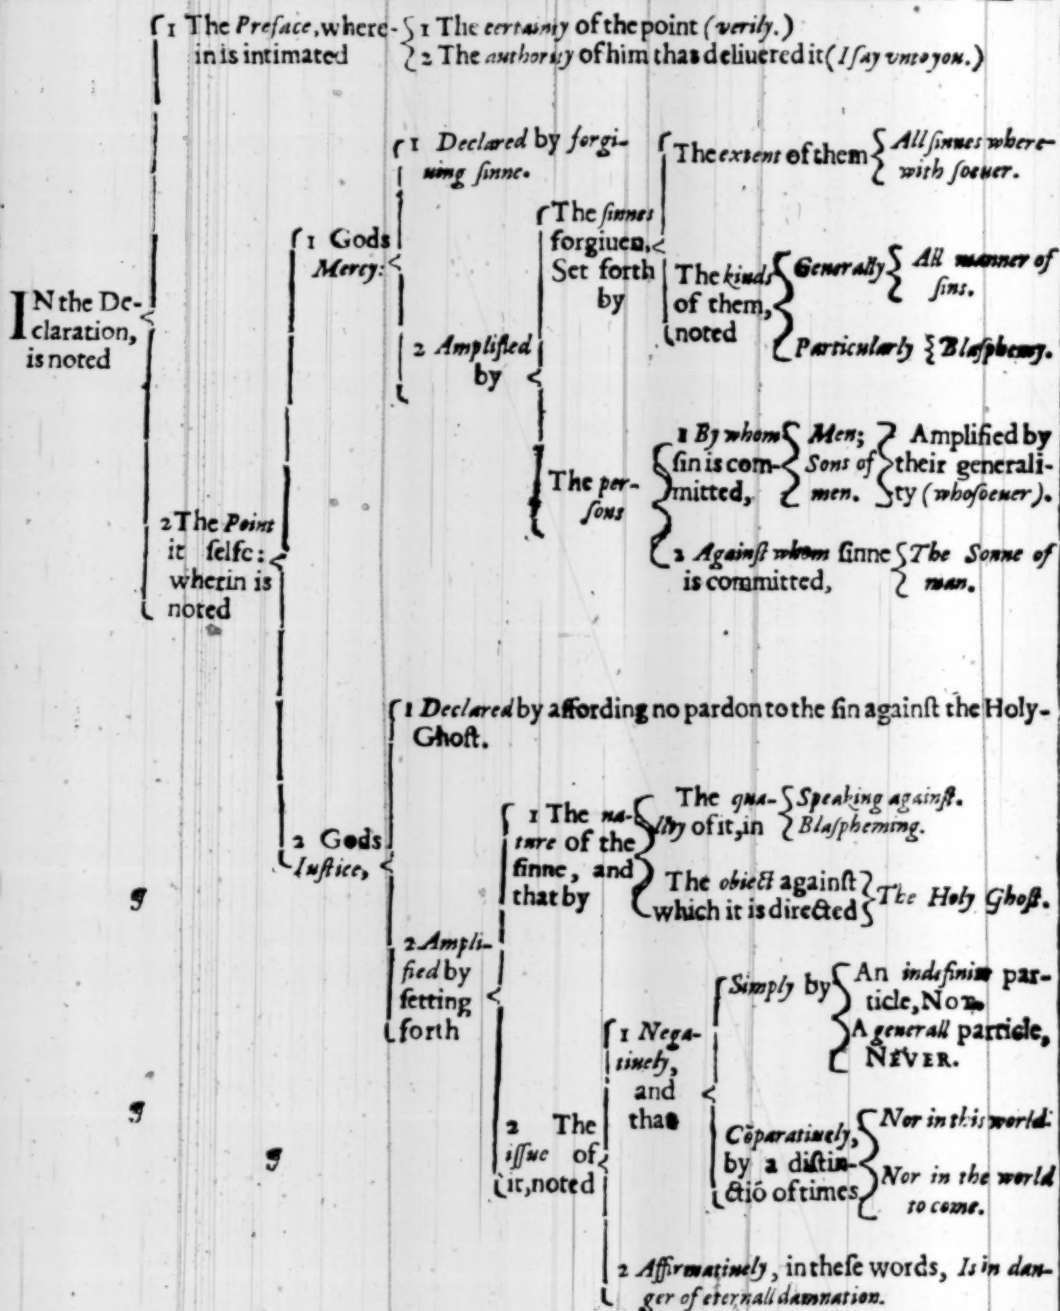 IN the De-
claration,
is noted
1 The Preface, where-
in is intimated
1 The certainty of the point (verily.)
2 The authority of him that deliuered it (I ſay vnto you.)
2 The Point
it ſelfe:
wherin is
noted
1 Gods
Mercy:
1 Declared by forgi-
uing ſinne.
2 Amplified
by
The ſinnes
forgiuen,
Set forth
by
The extent of them
All ſinnes where-
with ſoeuer.
The kinds
of them,
noted
Generally
All manner of
ſins.
Particularly
Blaſphemy.
The per-
ſons
1 By whom
ſin is com-
mitted,
Men;
Sons of
men.
Amplified by
their generali-
ty (whoſoeuer).
2 Againſt whom ſinne
is committed,
The Sonne of
man.
2 Gods
Iuſtice,
1 Declared by affording no pardon to the ſin againſt the Holy-
Ghoſt.
2 Ampli-
fied by
ſetting
forth
1 The na-
ture of the
ſinne, and
that by
The qua-
lity of it, in
Speaking againſt.
Blaſpheming.
The obiect againſt
which it is directed
The Holy Ghoſt.
2 The
iſſue of
it, noted
1 Nega-
tiuely,
and
that
Simply by
An indefinite par-
ticle, NOT.
A generall particle,
NEVER.
Cõparatiuely,
by a diſtin-
ctiõ of times
Nor in this world.
Nor in the world
to come.
2 Affirmatiuely, in theſe words, Is in dan-
ger of eternall damnation.